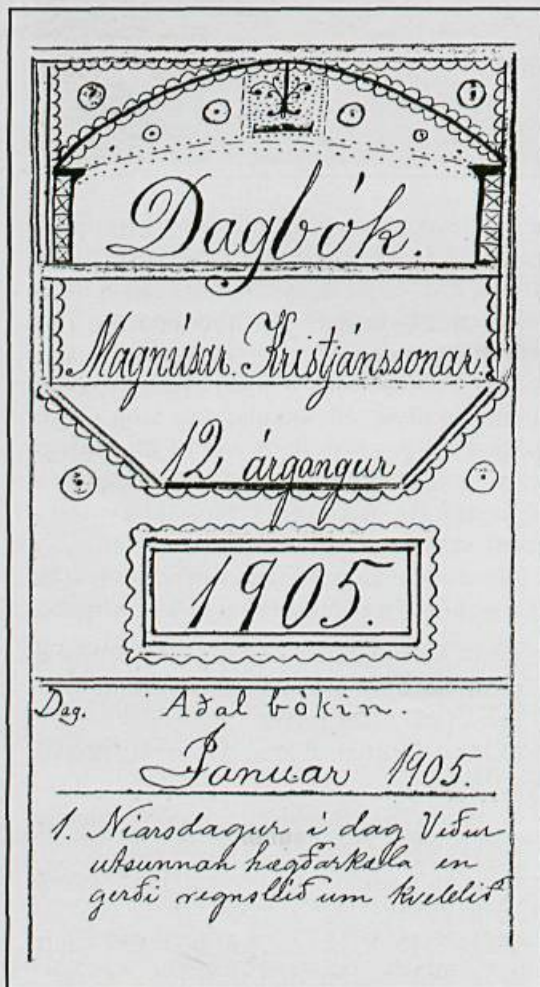 Dagbók.
Magnúsar. Kristjánssonar.
12 árgangur
1905.
Dag. Aðal bókin.
Januar 1905.
1. Niarsdagur i dag Viður
utsunnan hægðarkæla en
gerði regnsleið um kveldið